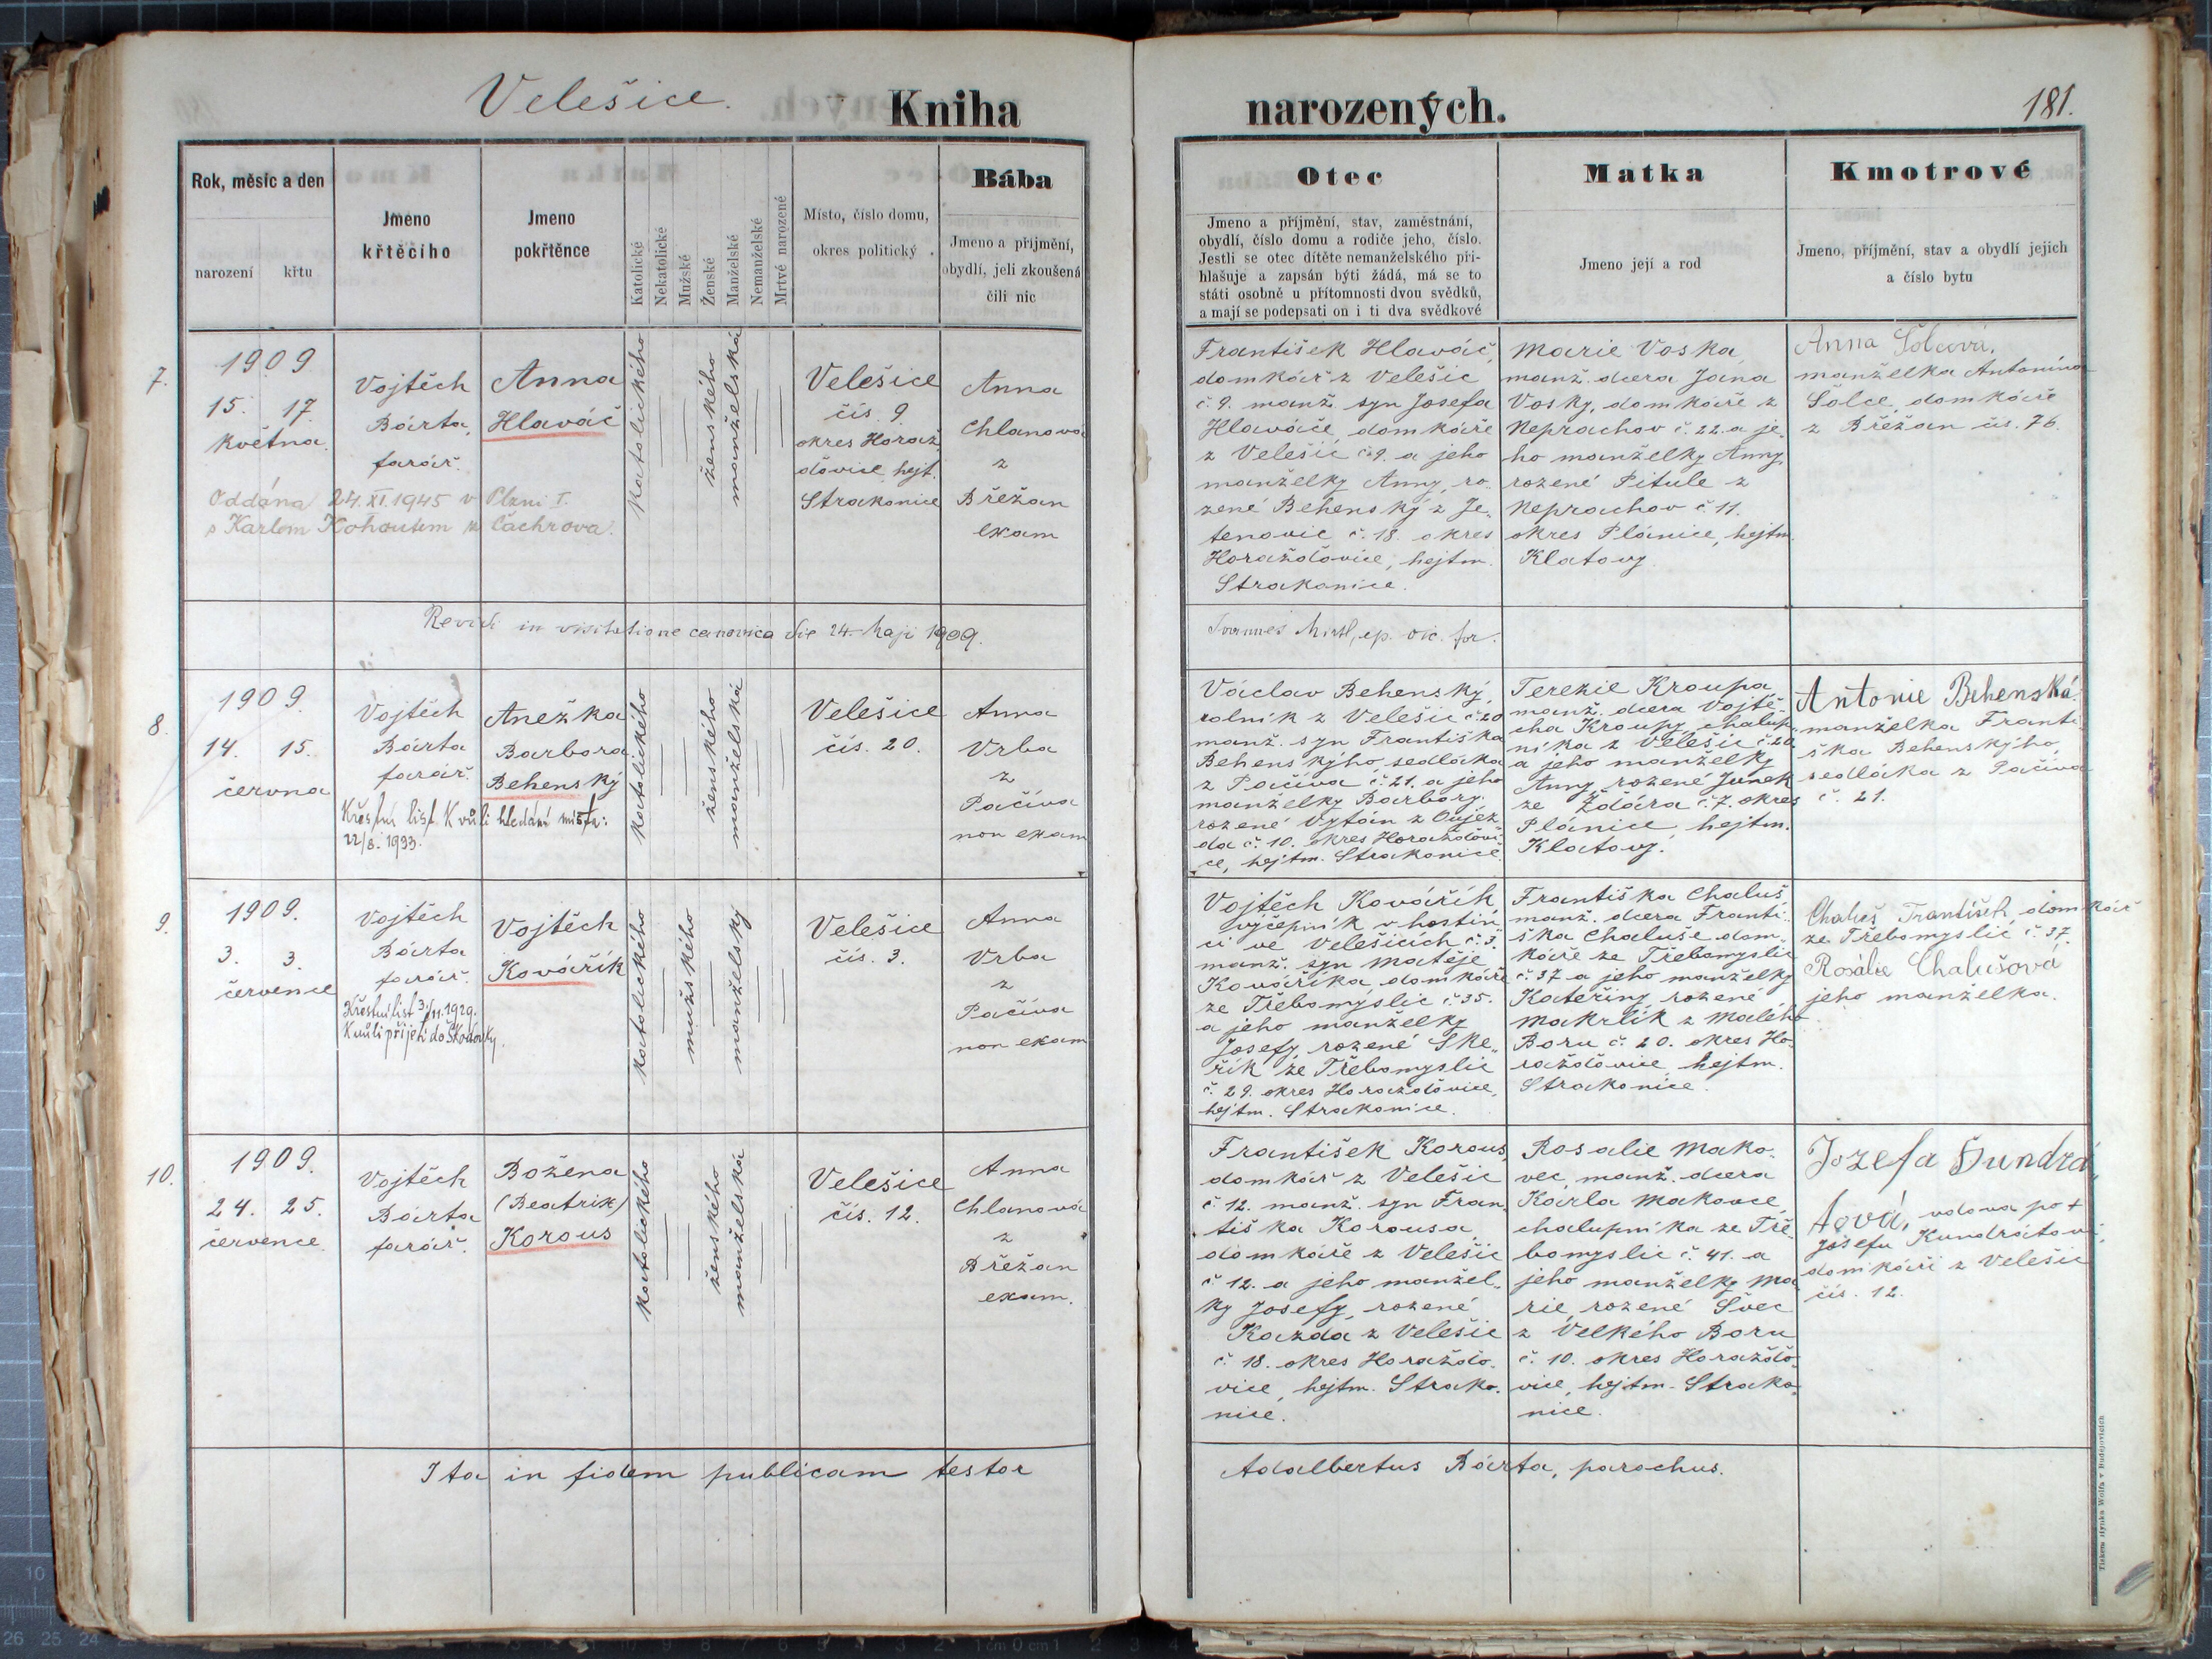 Velešice.
Kniha
narozených.
181.
Rok, měsíc a den
narození
křtu
Jméno
křtěcího
Jmeno
pokřtěnce
Katolické
Nekatolické
Mužské
Ženské
Manželské
Nemanželské
Mrtvé narozené
Místo, číslo domu,
okres politický
Bába
Jmeno a příjmění,
obydlí, jeli zkoušená
čili nic
Otec
Jmeno a příjmění, stav, zaměstnání,
obydlí, číslo domu a rodiče jeho, číslo.
Jestli se otec dítěte nemanželského při-
hlašuje a zapsán býti žádá, má se to
státi osobně u přítomnosti dvou svědků,
a mají se podepsati on i ti dva svědkové
Matka
Jmeno její a rod
Kmotrové
Jmeno, příjmění, stav a obydlí jejich
a číslo bytu
7.
1909
15. 17.
května.
Vojtěch
Bárta,
farář.
Anna
Hlaváč
katolického
ženského
manželská
Velešice
čís. 9
okres Horaž
ďovice, hejt.
Strakonice
Anna
Chlanová
z
Břežan
exam
Oddána 24. XI. 1945 v Plzni I.
s Karlem Kohoutem z Čachrova.
František Hlaváč,
domkář z Velešic
č. 9. manž. syn Josefa
Hlaváče, domkáře
z Velešic č. 9. a jeho
manželky Anny, ro-
zené Behenský z Je-
tenovic č. 18. okres
Horažďovice, hejtm.
Strakonice.
Marie Voska,
manž. dcera Jana
Vosky, domkáře z
Neprachov č. 22. a je-
ho manželky Anny,
rozené Pitule z
Neprachov č. 11.
okres Plánice, hejtm.
Klatovy.
Anna Šolcová,
manželka Antonína
Šolce, domkáře
z Břežan čís. 76.
Revidi in visitatione canonica die 24. Maji 1909.
Joannes ep. vic. for.
8.
1909.
14. 15.
června
Vojtěch
Bárta
farář.
Anežka
Barbora
Behenský
Křestní list kvůli hledání místa:
22/8. 1933.
katolického
ženského
manželská
Velešice
čís. 20.
Anna
Vrba
z
Pačiva
non exam
Václav Behenský,
rolník z Velešic č. 20
manž. syn Františka
Behenského, sedláka
z Pačiva č. 21. a jeho
manželky Barbory,
rozené Vytán z Oujez
da č. 10. okres Horažďovi
ce, hejtm. Strakonice.
Terezie Kroupa
manž. dcera Vojtě-
cha Kroupy, chalup
níka z Velešic č. 20.
a jeho manželky
Anny rozené Junek
ze Ždára č. 7. okres
Plánice, hejtm.
Klatovy.
Antonie Behenská
manželka Franti
ška Behenského,
sedláka z Pačiva
č. 21.
9.
1909.
3. 3.
července
Vojtěch
Bárta
farář.
Vojtěch
Kovářík
Křestní list 3/11. 1929.
Kvůli přijetí do Škodovky.
katolického
mužského
manželský
Velešice
čís. 3.
Anna
Vrba
z
Pačiva
non exam
Vojtěch Kovářík
výčepník v hostin
ci ve Velešicích č. 3.
manž. syn Matěje
Kováříka, domkáře
ze Třebomyslic č. 35.
a jeho manželky
Josefy, rozené Ske-
řík ze Třebomyslic
č. 29. okres Horažďovice,
hejtm. Strakonice.
Františka Chaluš
manž. dcera Franti-
ška Chaluše dom-
káře ze Třebomyslic
č. 37 a jeho manželky
Kateřiny, rozené
Makrlík z Malého
Boru č. 20. okres Ho-
ražďovice, hejtm.
Strakonice.
Chaluš František, domkář
ze Třebomyslic č. 37.
Rosálie Chalušová
jeho manželka.
10.
1909.
24. 25.
července.
Vojtěch
Bárta
farář.
Božena
(Beatrix)
Korous
katolického
ženského
manželská
Velešice
čís. 12.
Anna
Chlanová
z
Břežan
exam.
František Korous,
domkář z Velešic
č. 12. manž. syn Fran-
tiška Korousa,
domkáře z Velešic
č. 12. a jeho manžel-
ky Josefy, rozené
Kazda z Velešic
č. 18. okres Horažďo-
vice, hejtm. Strako-
nice.
Rosalie Mako-
vec, manž. dcera
Karla Makovce,
chalupníka ze Tře-
bomyslic č. 41. a
jeho manželky Ma
rie, rozené Švec
z Velkého Boru
č. 10. okres Horažďo-
vice, hejtm. Strako-
nice.
Jozefa
vdova po +
Josefu Kundrátovi,
domkáři z Velešic
čís. 12.
Ita in fidem publicam testor
Adalbertus Bárta, parochus.
Tiskem Hynka Wolfa v Budějovicích